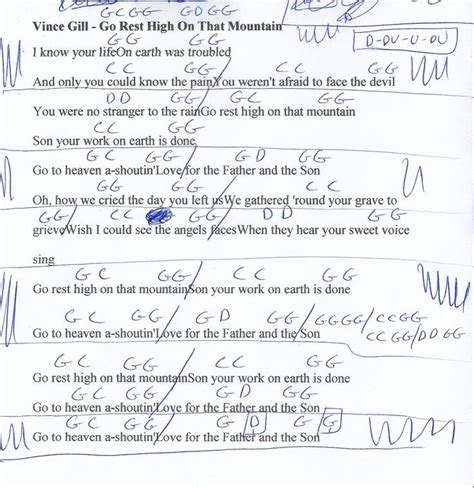 GCGG GDGG
Vince Gill - Go Rest High On That Mountain
GG GG D-DU-U-DU
I know your lifeOn earth was troubled
CC GG CC GG
And only you could know the painYou weren't afraid to face the devil
DD GG GC GG
You were no stranger to the rainGo rest high on that mountain
CC GG
Son your work on earth is done
GC GG/ GD GG
Go to heaven a-shoutin'Love for the Father and the Son
GG GG CC
Oh, how we cried the day you left usWe gathered 'round your grave to
GG/ CC GG/ DD GG
grieveWish I could see the angels facesWhen they hear your sweet voice
sing
GC GG/ CC GG
Go rest high on that mountainSon your work on earth is done
GC GG/ GD GG/GGGG/CCGG
Go to heaven a-shoutin'Love for the Father and the Son CCGG/DDGG
GC GG CC GG
Go rest high on that mountainSon your work on earth is done
GC GG GD GG
Go to heaven a-shoutin'Love for the Father and the Son
GC GG G D G G
Go to heaven a-shoutin'Love for the Father and the Son